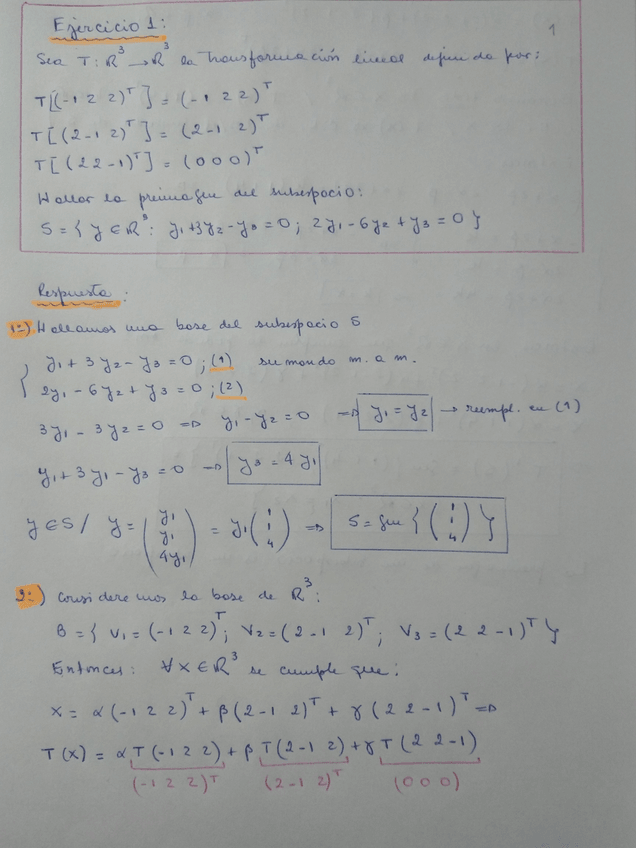 1
Ejercicio 1:
Sea T: ℝ³ → ℝ³ la transformación lineal definida por:
T[(-1 2 2)ᵀ] = (-1 2 2)ᵀ
T[(2 -1 2)ᵀ] = (2 -1 2)ᵀ
T[(2 2 -1)ᵀ] = (0 0 0)ᵀ
Hallar la preimagen del subespacio:
S = { y ∈ ℝ³: y₁+3y₂-y₃=0; 2y₁-6y₂+y₃=0 }
Respuesta:
1º) Hallamos una base del subespacio S
{ y₁ + 3y₂ - y₃ = 0 ; (1) sumando m. a m.
2y₁ - 6y₂ + y₃ = 0 ; (2)
3y₁ - 3y₂ = 0 ⇒ y₁ - y₂ = 0 ⇒ y₁ = y₂ → reempl. en (1)
y₁ + 3y₁ - y₃ = 0 ⇒ y₃ = 4y₁
y ∈ S / y = (y₁ y₁ 4y₁) = y₁ (1 1 4) ⇒ S = gen { (1 1 4) }
2º) Consideremos la base de ℝ³:
B = { V₁ = (-1 2 2)ᵀ; V₂ = (2 -1 2)ᵀ; V₃ = (2 2 -1)ᵀ }
Entonces: ∀ x ∈ ℝ³ se cumple que:
x = α(-1 2 2)ᵀ + β(2 -1 2)ᵀ + γ(2 2 -1)ᵀ ⇒
T(x) = αT(-1 2 2) + βT(2 -1 2) + γT(2 2 -1)
(-1 2 2)ᵀ (2 -1 2)ᵀ (0 0 0)